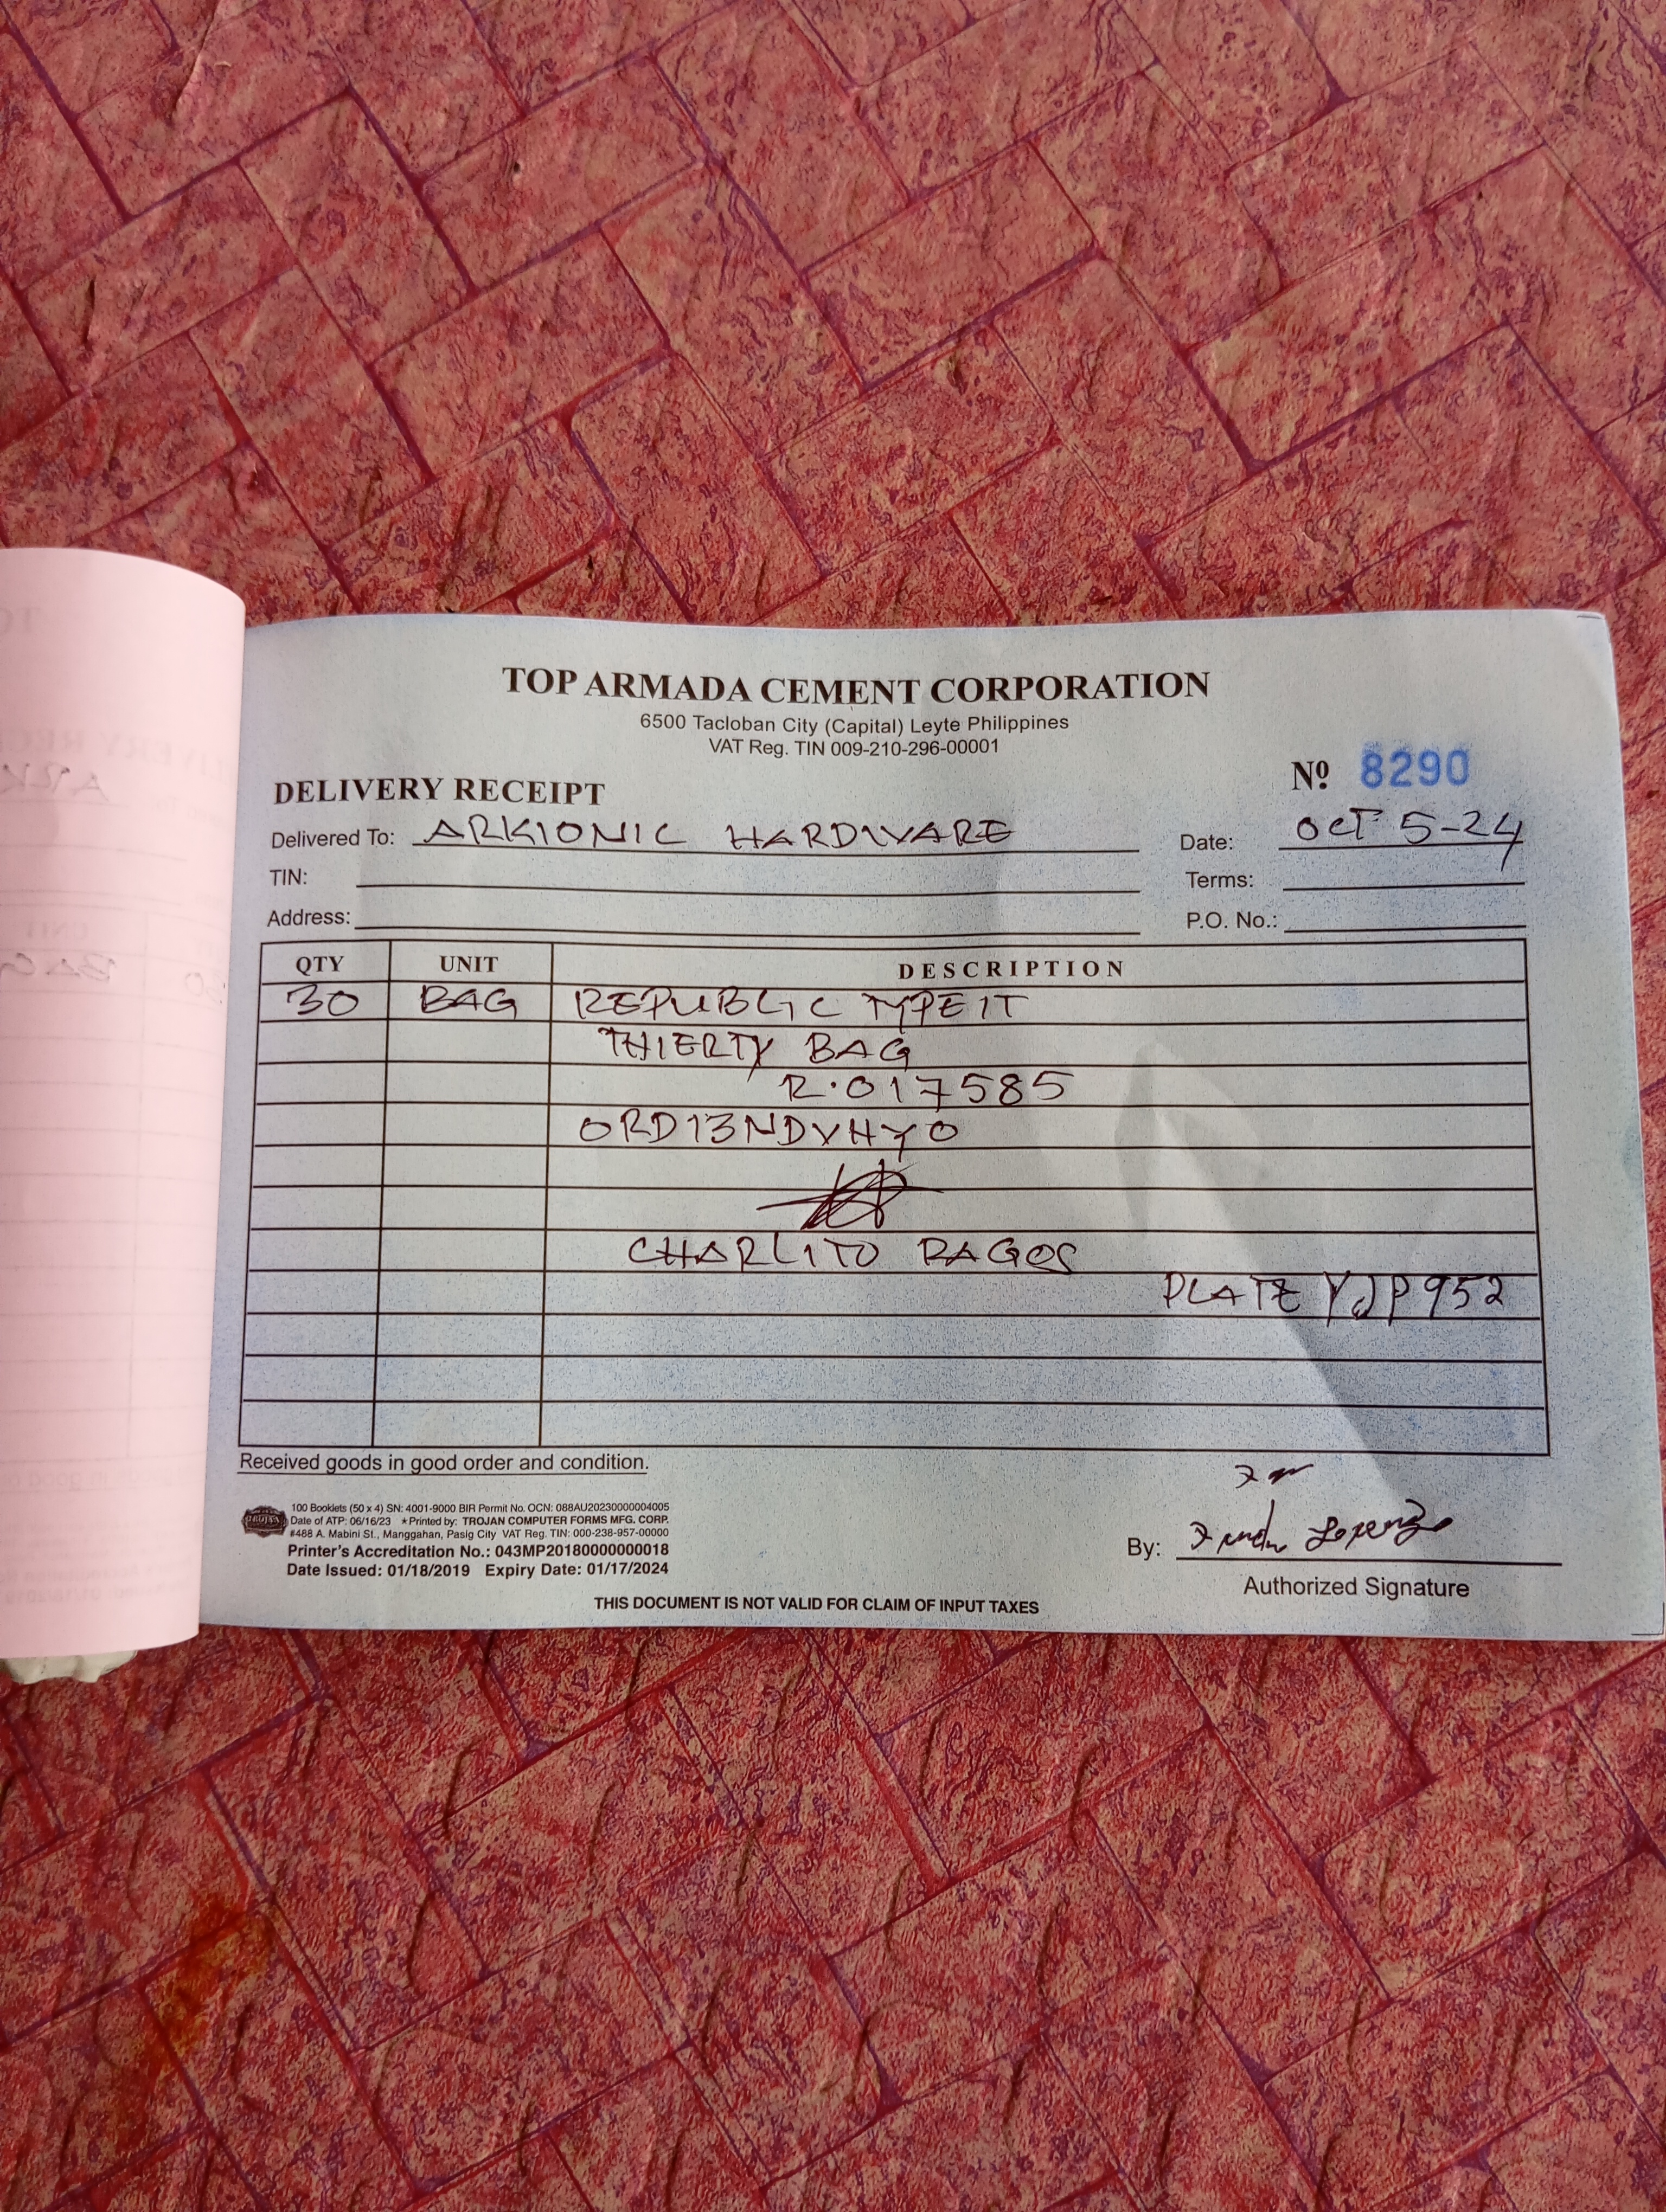 TOP ARMADA CEMENT CORPORATION
6500 Tacloban City (Capital) Leyte Philippines
VAT Reg. TIN 009-210-296-00001
DELIVERY RECEIPT
Nº 8290
Delivered To: ARKIONIC HARDWARE
Date: OCT 5-24
TIN:
Terms:
Address:
P.O. No.:
QTY UNIT DESCRIPTION
30 BAG REPUBLIC TYPE 1T
THIERTY BAG
R.017585
ORD13NDVHYO
CHARLITO RAGOS
PLATE YJP952
Received goods in good order and condition.
TROJAN
100 Booklets (50 x 4) SN: 4001-9000 BIR Permit No. OCN: 088AU20230000004005
Date of ATP: 06/16/23 ★Printed by: TROJAN COMPUTER FORMS MFG. CORP.
#488 A. Mabini St., Manggahan, Pasig City VAT Reg. TIN: 000-238-957-00000
Printer's Accreditation No.: 043MP20180000000018
Date Issued: 01/18/2019 Expiry Date: 01/17/2024
By: Lorenzo
Authorized Signature
THIS DOCUMENT IS NOT VALID FOR CLAIM OF INPUT TAXES